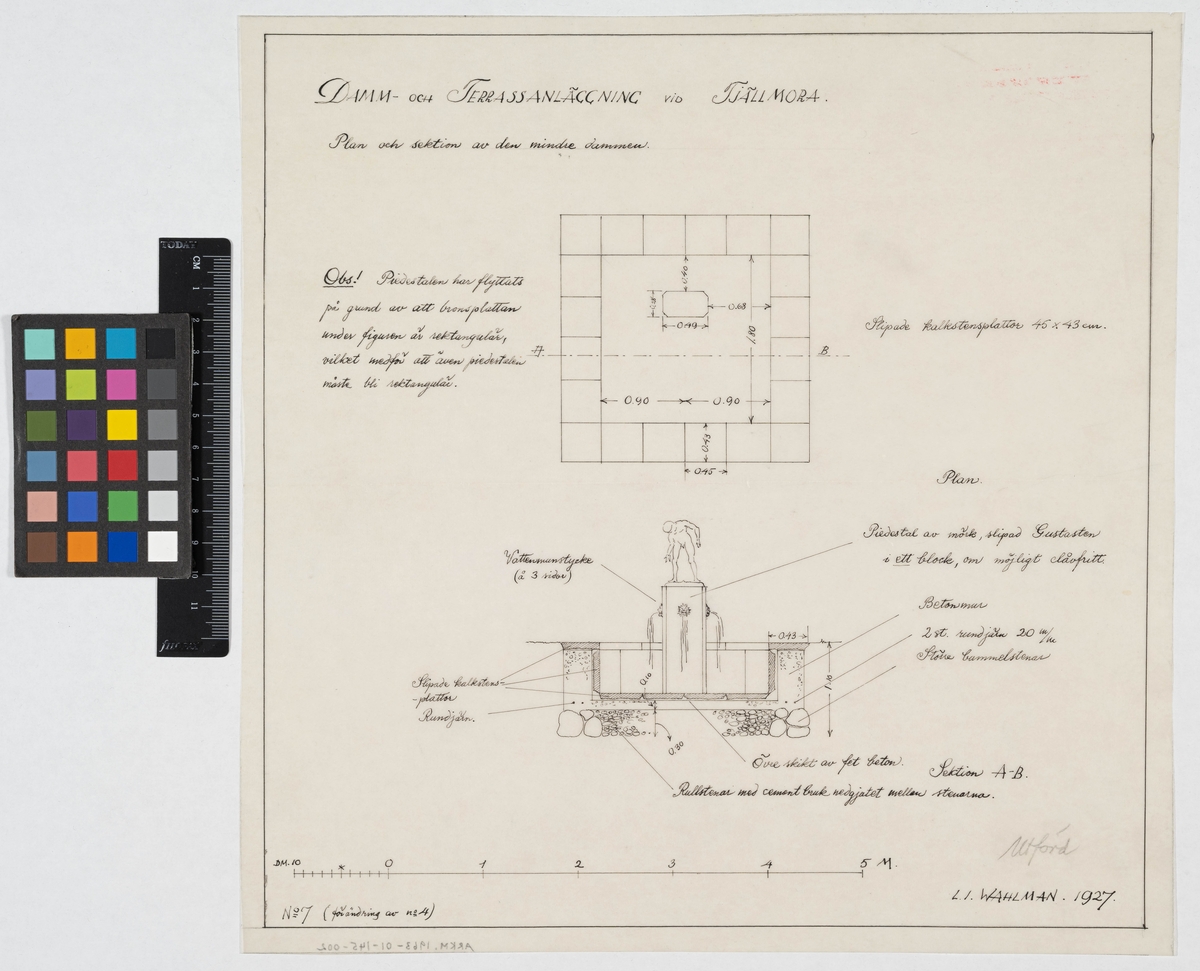 DAMM- OCH TERRASSANLÄGGNING VID TJÄLLMORA.
Plan och sektion av den mindre dammen.
Obs! Piedestalen har flyttats
på grund av att bronsplattan
under figuren är rektangulär,
vilket medför att även piedestalen
måste bli rektangulär.
0.40
0.68
0.49
1.80
A
B
0.90
0.90
0.43
0.45
Slipade kalkstensplattor 45 x 43 cm.
Plan.
Piedestal av mörk, slipad Gustasten
i ett block, om möjligt klåvfritt.
Vattenmunstycke
(å 3 sidor)
Betonmur
0.43
2 st. rundjärn 20 m/m
Större bummelstenar
Slipade kalkstens-
-plattor
Rundjärn.
0.10
1.10
0.30
Övre skikt av fet beton.
Sektion A-B.
Rullstenar med cementbruk nedgjutet mellan stenarna.
DM.10
0
1
2
3
4
5 M.
Utförd
L.I. WAHLMAN. 1927.
No 7 (förändring av no 4)
ARKM.1963-01-145-002
TODAY
CM
1
2
3
4
5
6
7
8
9
10
11